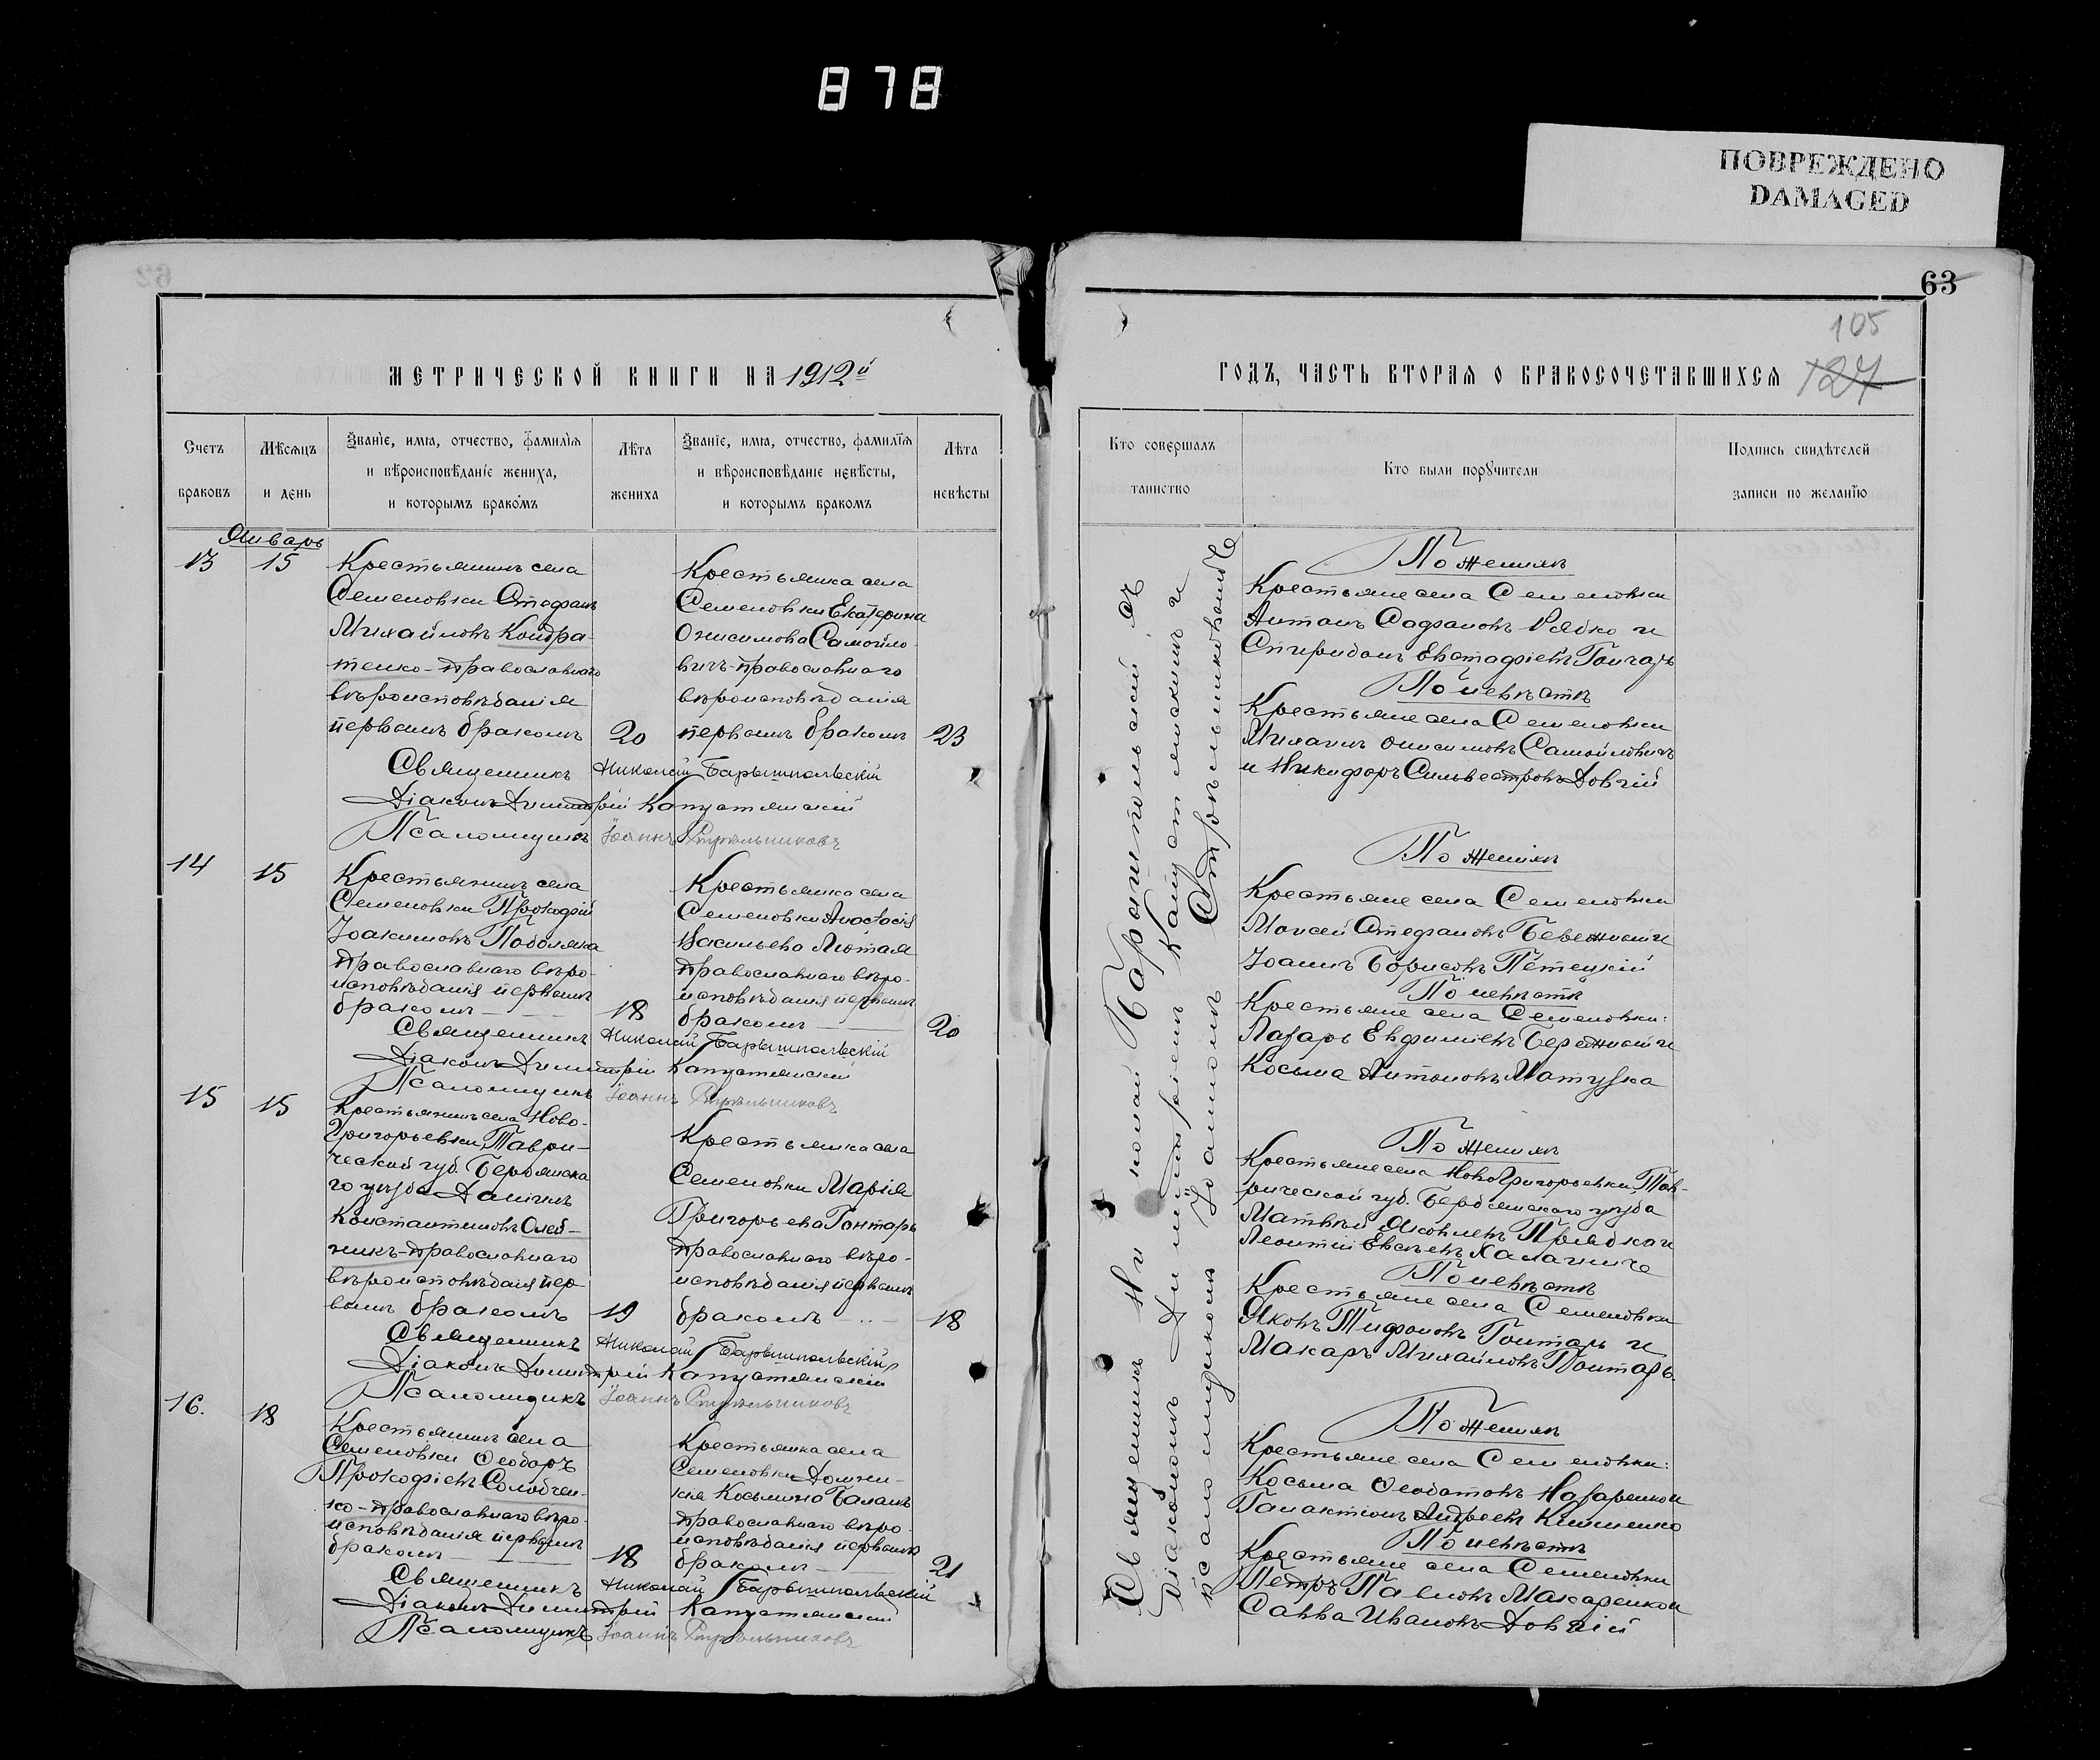 878
ПОВРЕЖДЕНО
DAMAGED
63
105
127
МЕТРИЧЕСКОЙ КНИГИ НА 1912й
ГОДЪ, ЧАСТЬ ВТОРАЯ О БРАКОСОЧЕТАВШИХСЯ
Счетъ браковъ
Мѣсяцъ и день
Званіе, имя, отчество, фамилія
и вѣроисповѣданіе жениха,
и которымъ бракомъ
Лѣта жениха
Званіе, имя, отчество, фамилія
и вѣроисповѣданіе невѣсты,
и которымъ бракомъ
Лѣта невѣсты
Кто совершалъ
таинство
Кто были поручители
Подпись свидѣтелей
записи по желанію
Январь
13
15
Крестьянинъ села
Семеновки Стефанъ
Михайловъ Кондра-
тенко - православнаго
вѣроисповѣданія
первымъ бракомъ
20
Крестьянка села
Семеновки Екатерина
Онисимова Самойло-
вичъ - православнаго
вѣроисповѣданія
первымъ бракомъ
23
Священникъ Николай Барышпольскій
Діаконъ Димитрій Капустянскій
Псаломщикъ Іоаннъ Стрѣльниковъ
14
15
Крестьянинъ села
Семеновки Прокофій
Іоакимовъ Подоляка
православнаго вѣро-
исповѣданія первымъ
бракомъ
18
Крестьянка села
Семеновки Анастасія
Васильева Лютая
православнаго вѣро-
исповѣданія первымъ
бракомъ
20
Священникъ Николай Барышпольскій
Діаконъ Димитрій Капустянскій
Псаломщикъ Іоаннъ Стрѣльниковъ
15
15
Крестьянинъ села Ново-
Григорьевки, Таври-
ческой губ. Бердянска-
го уѣзда Даніилъ
Константиновъ Олей-
никъ - православнаго
вѣроисповѣданія пер-
вымъ бракомъ
19
Крестьянка села
Семеновки Марія
Григорьева Гонтарь
православнаго вѣро-
исповѣданія первымъ
бракомъ
18
Священникъ Николай Барышпольскій
Діаконъ Димитрій Капустянскій
Псаломщикъ Іоаннъ Стрѣльниковъ
16.
18
Крестьянинъ села
Семеновки Ѳеодоръ
Прокофіевъ Солодчен-
ко - православнаго вѣро-
исповѣданія первымъ
бракомъ
18
Крестьянка села
Семеновки Домни-
кія Косьмина Баланъ
православнаго вѣро-
исповѣданія первымъ
бракомъ
21
Священникъ Николай Барышпольскій
Діаконъ Димитрій Капустянскій
Псаломщикъ Іоаннъ Стрѣльниковъ
Священникъ Николай Барышпольскій съ
Діакономъ Димитріемъ Капустянскимъ и
псаломщикомъ Іоанномъ Стрѣльниковымъ
По женихѣ
Крестьяне села Семеновки
Антонъ Софроновъ Рябко и
Спиридонъ Евстафіевъ Гончаръ
По невѣстѣ
Крестьяне села Семеновки
Михаилъ Онисимовъ Самойловичъ
и Никифоръ Сильвестровъ Довгій
По женихѣ
Крестьяне села Семеновки
Моисей Стефановъ Бережный и
Іоаннъ Борисовъ Петецкій
По невѣстѣ
Крестьяне села Семеновки:
Лазарь Евфиміевъ Бережный и
Косьма Антоновъ Матузка
По женихѣ
Крестьяне села НовоГригорьевки, Тав-
рической губ. Бердянскаго уѣзда
Матѳей Яковлевъ Прядка и
Леонтій Евсѣевъ Халани и
По невѣстѣ
Крестьяне села Семеновки
Яковъ Тифоновъ Гонтарь и
Макаръ Михайловъ Гонтарь.
По женихѣ
Крестьяне села Семеновки:
Косьма Ѳеодотовъ Назаренко и
Галактіонъ Андреевъ Клименко
По невѣстѣ
Крестьяне села Семеновки
Петръ Павловъ Макаренко и
Савва Ивановъ Довгій